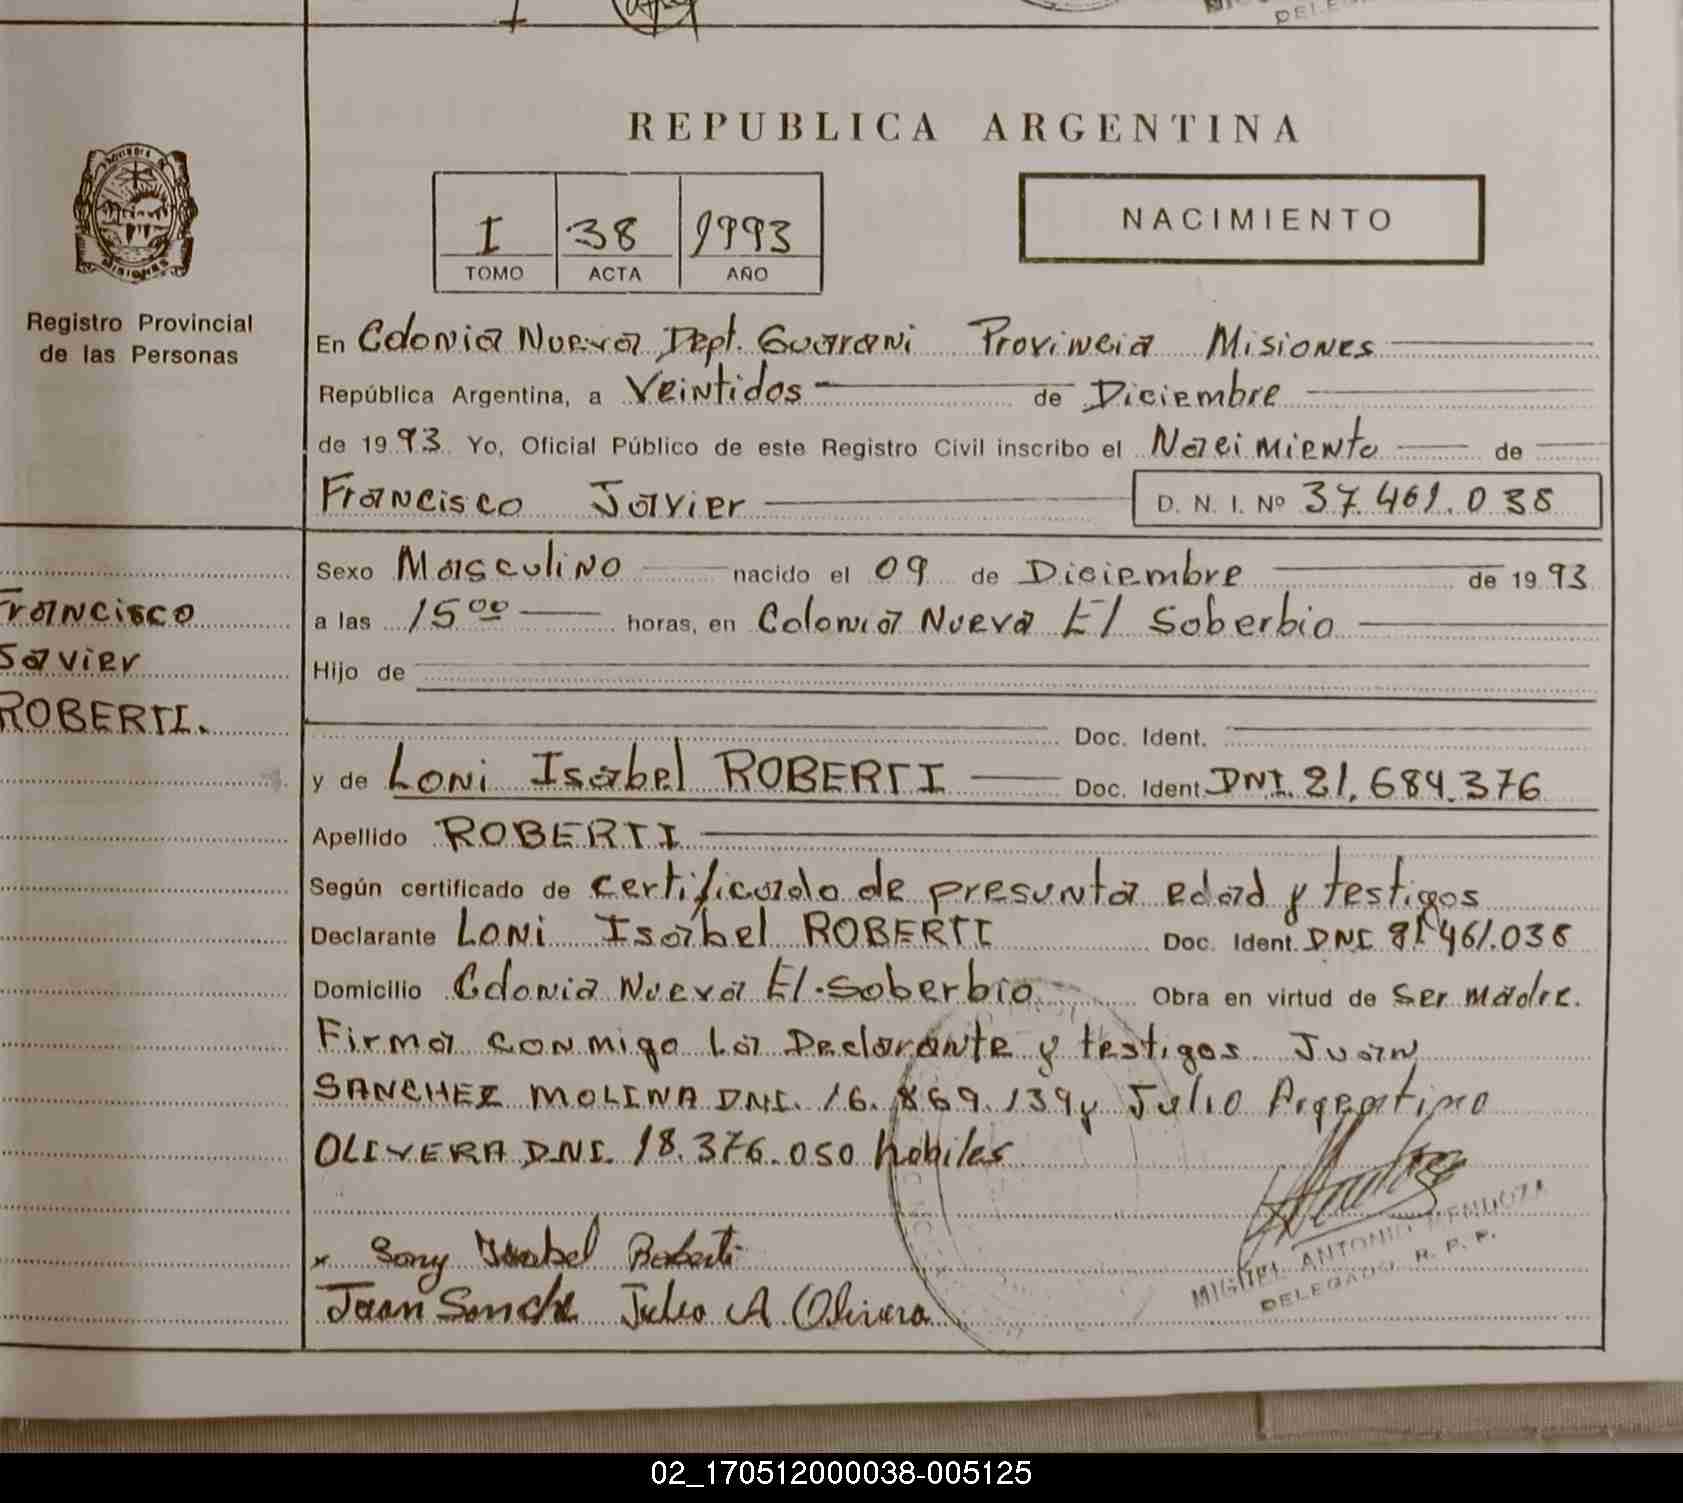 REPUBLICA ARGENTINA
I 38 1993
TOMO ACTA AÑO
NACIMIENTO
MISIONES
Registro Provincial
de las Personas
En Colonia Nueva Dept. Guarani Provincia Misiones
República Argentina, a Veintidos de Diciembre
de 1993 Yo, Oficial Público de este Registro Civil inscribo el Nacimiento de
Francisco Javier D. N. I. Nº 37.461.038
Francisco
Javier
ROBERTI.
Sexo Masculino nacido el 09 de Diciembre de 1993
a las 15 00 horas, en Colonia Nueva El Soberbio
Hijo de
Doc. Ident.
y de Loni Isabel ROBERTI Doc. Ident. DNI. 21.684.376
Apellido ROBERTI
Según certificado de certificado de presunta edad y testigos
Declarante Loni Isabel ROBERTI Doc. Ident. DNI 461.038
Domicilio Colonia Nueva El Soberbio Obra en virtud de Ser madre.
Firma conmigo La Declarante y testigos Juan
SANCHEZ MOLINA DNI. 16.869.139 y Julio Argentino
OLIVERA DNI. 18.376.050 habiles
x Isabel Roberti
Juan Julio A Olivera
MIGUEL ANTONIO MENDOZA
DELEGADO R. P. P.
02_170512000038-005125